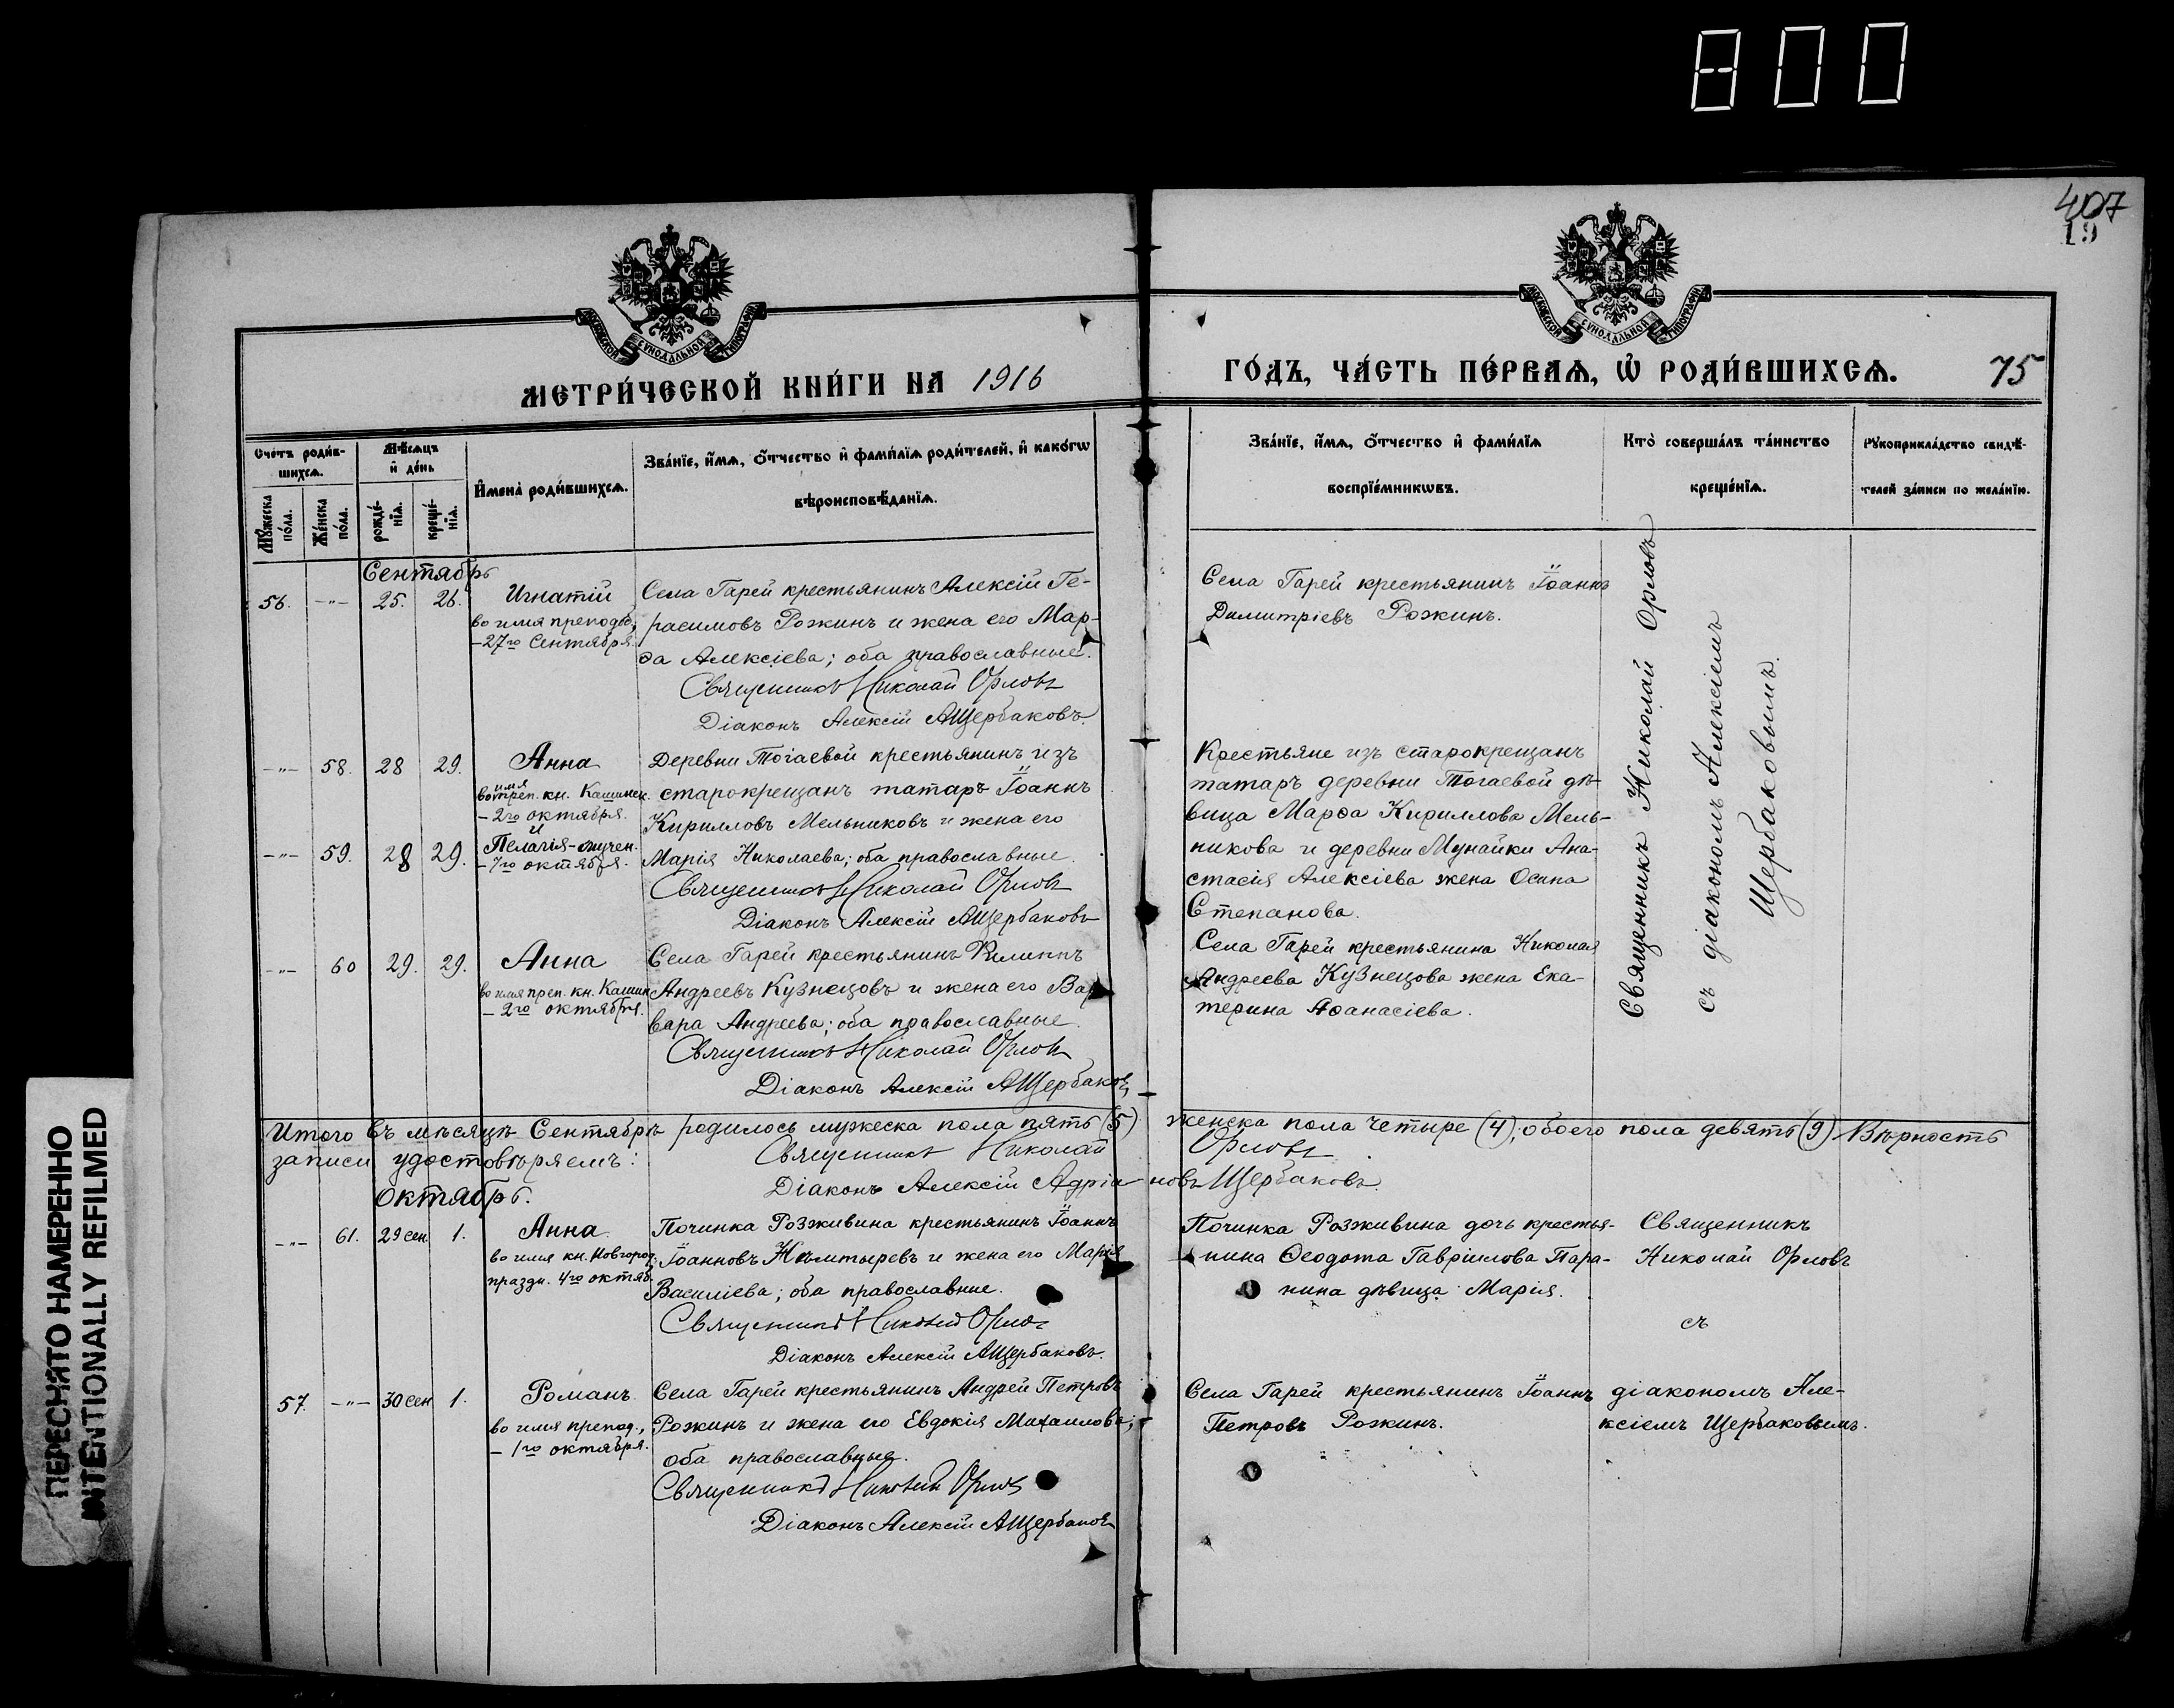 800
407
19
МОСКОВСКОЙ СѴНОДАЛЬНОЙ ТИПОГРАФІИ
МОСКОВСКОЙ СѴНОДАЛЬНОЙ ТИПОГРАФІИ
МЕТРИ́ЧЕСКОЙ КНИ́ГИ НА 1916
ГО́ДЪ, ЧА́СТЬ ПЕ́РВАѦ, Ѡ РОДИ́ВШИХСѦ. 75
Сче́тъ роди́в-
шихсѧ.
Мꙋ́жеска по́ла.
Же́нска по́ла.
Мѣ́сѧцъ и де́нь
рожде́-нїѧ.
креще́-нїѧ.
Имена̀ роди́вшихсѧ.
Зва́нїе, и́мѧ, о́тчество и фами́лїѧ роди́телей, и како́гѡ
вѣроисповѣ́данїѧ.
Зва́нїе, и́мѧ, о́тчество и фами́лїѧ
воспрїе́мникѡвъ.
Кто̀ соверша́лъ та́инство
креще́нїѧ.
Рꙋкоприкла́дство свидѣ́-
телей за́писи по жела́нїю.
Сентябрь
56. -"- 25. 26. Игнатій
во имя преподоб,
-27го Сентября.
Села Гарей крестьянинъ Алексій Ге-
расимовъ Рожинъ и жена его Мар-
ѳа Алексіева; оба православные.
Священникъ Николай Орловъ
Діаконъ Алексій АЩербаковъ.
Села Гарей крестьянинъ Іоаннъ
Димитріевъ Рожинъ.
Священникъ Николай Орловъ
съ діакономъ Алексіемъ
Щербаковымъ.
-"- 58. 28 29. Анна
во имя преп. кн. Кашинск.
- 2го октября.
и
-"- 59. 28 29. Пелагія - мучен.
- 7го октября.
Деревни Тогаевой крестьянинъ изъ
старокрещанъ татаръ Іоаннъ
Кирилловъ Мельниковъ и жена его
Марія Николаева; оба православные.
Священникъ Николай Орловъ
Діаконъ Алексій АЩербаковъ
Крестьяне изъ старокрещанъ
татаръ деревни Тогаевой дѣ-
вица Марѳа Кириллова Мель-
никова и деревни Мунайки Ана-
стасія Алексіева жена Осипа
Степанова.
-"- 60 29. 29. Анна
во имя преп. кн. Кашин.
- 2го октября.
Села Гарей крестьянинъ Филиппъ
Андреевъ Кузнецовъ и жена его Вар-
вара Андреева; оба православные.
Священникъ Николай Орловъ
Діаконъ Алексій АЩербаковъ
Села Гарей крестьянина Николая
Андреева Кузнецова жена Ека-
терина Аѳанасіева.
Итого въ мѣсяцѣ Сентябрѣ родилось мужеска пола пять (5) женска пола четыре (4), обоего пола девять (9) Вѣрность
записи удостовѣряемъ: Священникъ Николай Орловъ
Діаконъ Алексій Адріановъ Щербаковъ.
Октябрь.
-"- 61. 29 сен 1. Анна
во имя кн. Новгород.
праздн. 4го октяб.
Починка Розживина крестьянинъ Іоаннъ
Іоанновъ и жена его Марія
Василіева; оба православные.
Священникъ Николай Орловъ
Діаконъ Алексій АЩербаковъ.
Починка Розживина дочь крестья-
нина Ѳеодота Гавріилова Пара-
нина дѣвица Марія.
Священникъ
Николай Орловъ
съ
діакономъ Але-
ксіемъ Щербаковымъ.
57. -"- 30 сен 1. Романъ
во имя препод.,
- 1го октября.
Села Гарей крестьянинъ Андрей Петровъ
Рожинъ и жена его Евдокія Михаилова;
оба православные.
Священникъ Николай Орловъ
Діаконъ Алексій АЩербаковъ
Села Гарей крестьянинъ Іоаннъ
Петровъ Рожинъ.
ПЕРЕСНЯТО НАМЕРЕННО
INTENTIONALLY REFILMED